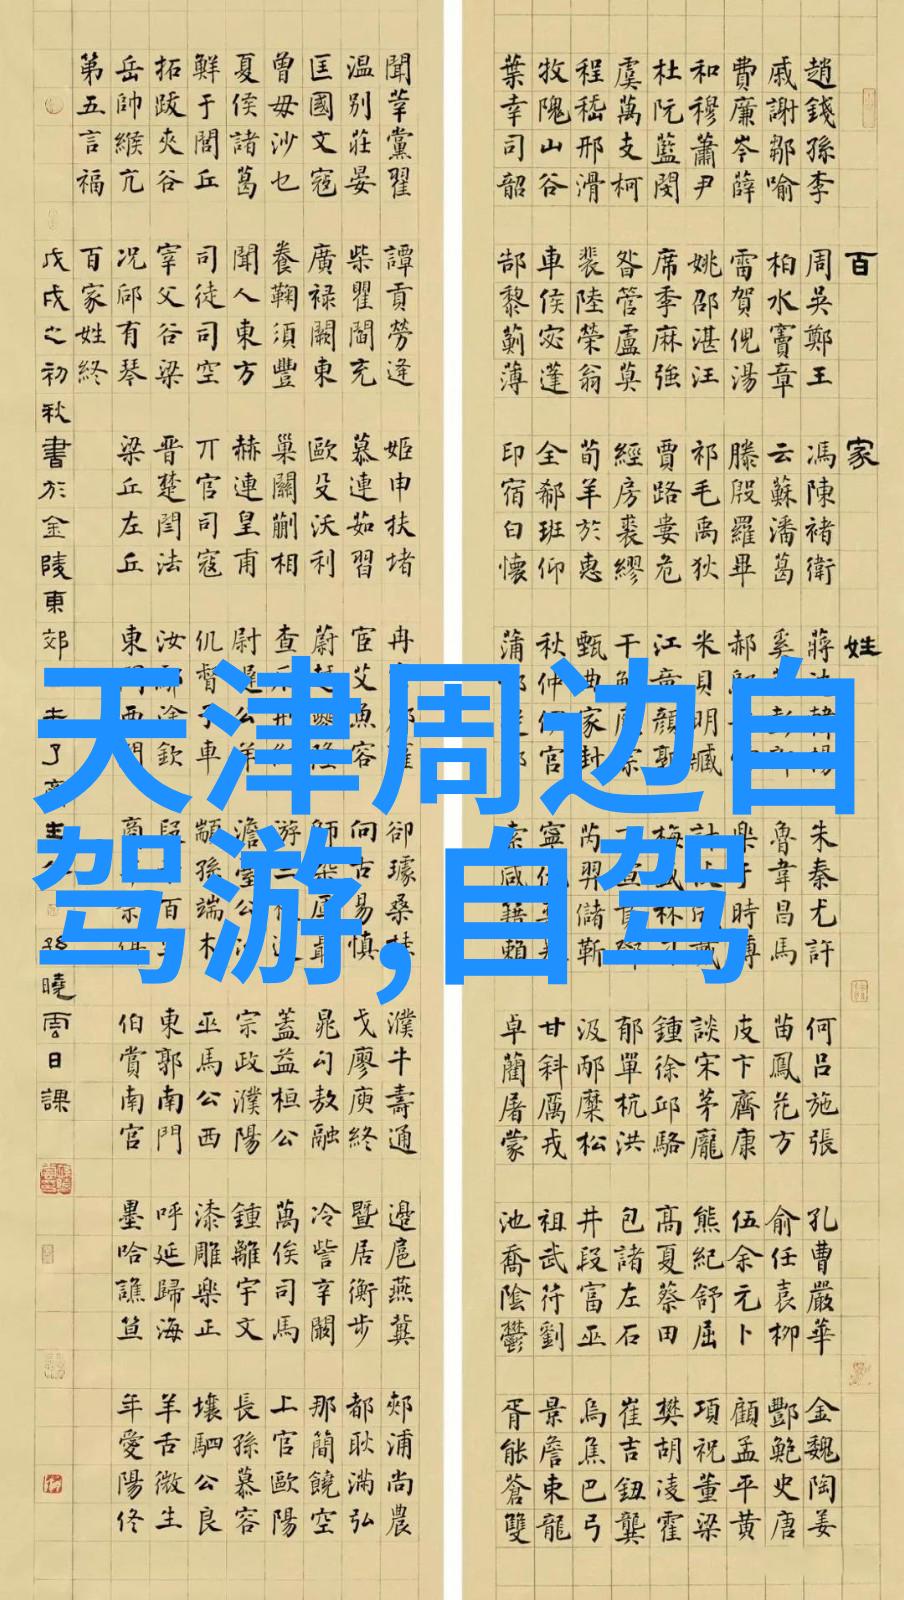 百家姓
趙錢孫李 周吳鄭王 馮陳褚衛 蔣 朱秦尤許 何呂施張 孔曹嚴華 金魏陶姜
戚謝鄒喻 柏水竇章 云蘇潘葛 奚 魯韋昌馬 苗鳳花方 俞任袁柳 酆鮑史唐
費廉岑薛 雷賀倪湯 滕殷羅畢 郝 時 皮卞齊康 伍余元卜 顧孟平黃
和穆蕭尹 姚邵湛汪 祁毛禹狄 米貝明臧 談宋茅龐 熊紀舒屈 項祝董梁
杜阮藍閔 席季麻強 賈路婁危 江童顏 梅 鍾徐邱駱 高夏蔡田 樊胡凌霍
虞萬支柯 昝管盧莫 經房裘繆 干 郁單杭洪 包諸左石 崔吉鈕龔
程嵇邢滑 裴陸榮翁 荀羊於惠 甄曲家封 芮羿儲靳 汲邴糜松 井段富巫 烏焦巴弓
牧隗山谷 車侯宓蓬 全郗班仰 秋仲伊宮 寧 甘鈄厲戎 祖武符劉 景詹束龍
葉幸司韶 郜黎薊薄 印宿白懷 蒲 索咸籍賴 卓藺屠蒙 池喬陰鬱 胥能蒼雙
聞莘黨翟 譚貢勞逄 姬申扶堵 冉 卻璩桑 濮牛壽通 邊扈燕冀 郟浦尚農
溫別莊晏 柴瞿閻充 慕連茹習 宦艾魚容 向古易慎 戈廖庾終 暨居衡步 都耿滿弘
匡國文寇 廣祿闕東 歐殳沃利 蔚 晁勾敖融 冷訾辛闞 那簡饒空
曾毋沙乜 養鞠須豐 巢關蒯相 查 游 蓋益桓公 萬俟司馬 上官歐陽
夏侯諸葛 聞人東方 赫連皇甫 尉遲公 澹 宗政濮陽 鍾離宇文 長孫慕容
鮮于閭丘 司徒司空 亓官司寇 仉督子車 顓孫端木 巫馬公西 漆雕樂正 壤駟公良
拓跋夾谷 宰父谷梁 晉楚閆法 汝 涂欽 百 東郭南門 呼延歸海 羊舌微生
岳帥緱亢 況郈有琴 梁丘左丘 東門西門 商 伯賞南宮 墨哈譙笪 年愛陽佟
第五言福 百家姓終
戊戌之初秋書於金陵東郊 孫曉雲日課
天津周边自
驾游,自驾